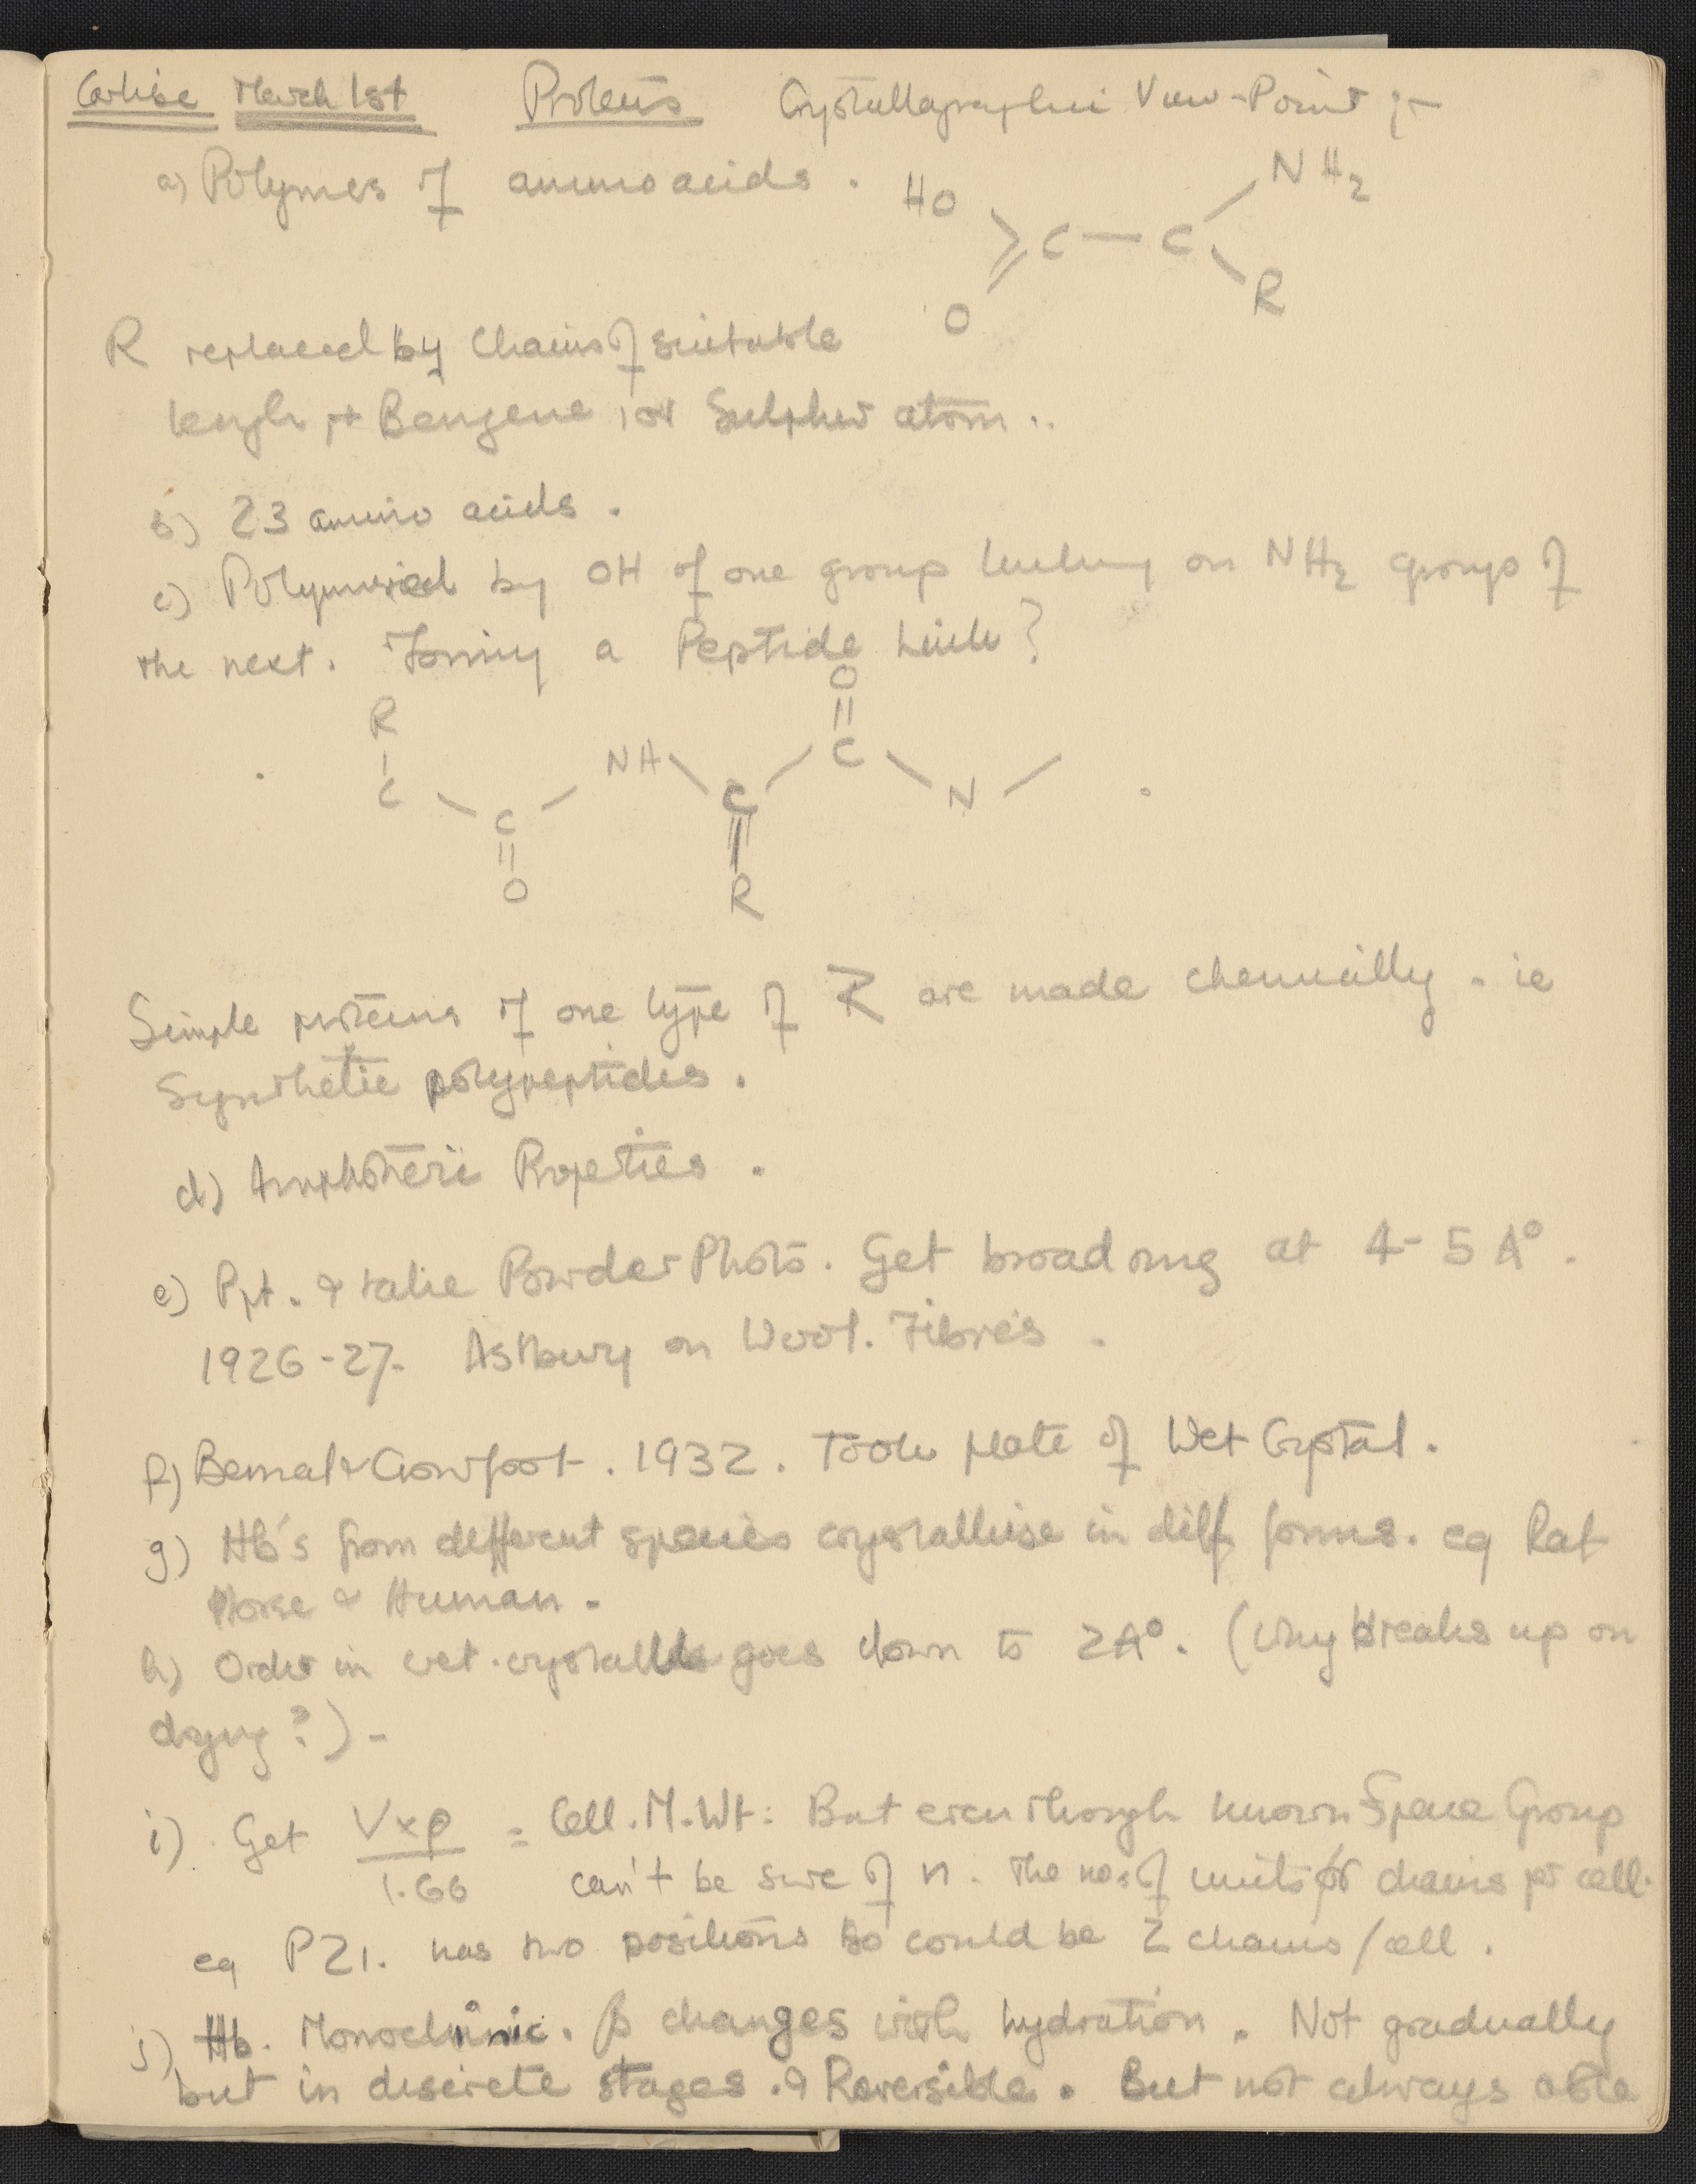 Carlise March 1st Proteins Crystallographic View-Point :-
a) Polymers of amino acids.
HO NH2
C — C
O R
R replaced by Chains of suitable
length, + Benzene, or Sulphur atom..
b) 23 amino acids.
c) Polymerised by OH of one group linking on NH2 groups of
the next. Forming a Peptide Link?
O
R
C NH C
C C N
O R
Simple proteins of one type of R are made chemically. ie
Synthetic polypeptides.
d) Amphoteric Properties.
e) Ppt. & take Powder Photo. Get broad ring at 4-5 A°.
1926-27. Astbury on Wool. Fibres.
f) Bernal & Crowfoot. 1932. Took plate of Wet Crystal.
g) Hb's from different species crystallise in diff forms. eg Rat
Horse & Human.
h) Order in wet crystals goes down to 2A°. (Why breaks up on
drying?)-
i) Get V×ρ / 1.66 = Cell. M.Wt: But even though known Space Group
can't be sure of n. The no. of units or chains per cell.
eg P21. has two positions so could be 2 chains/cell.
j) Hb. Monoclinic. β changes with hydration. Not gradually
but in discrete stages. & Reversible. But not always able